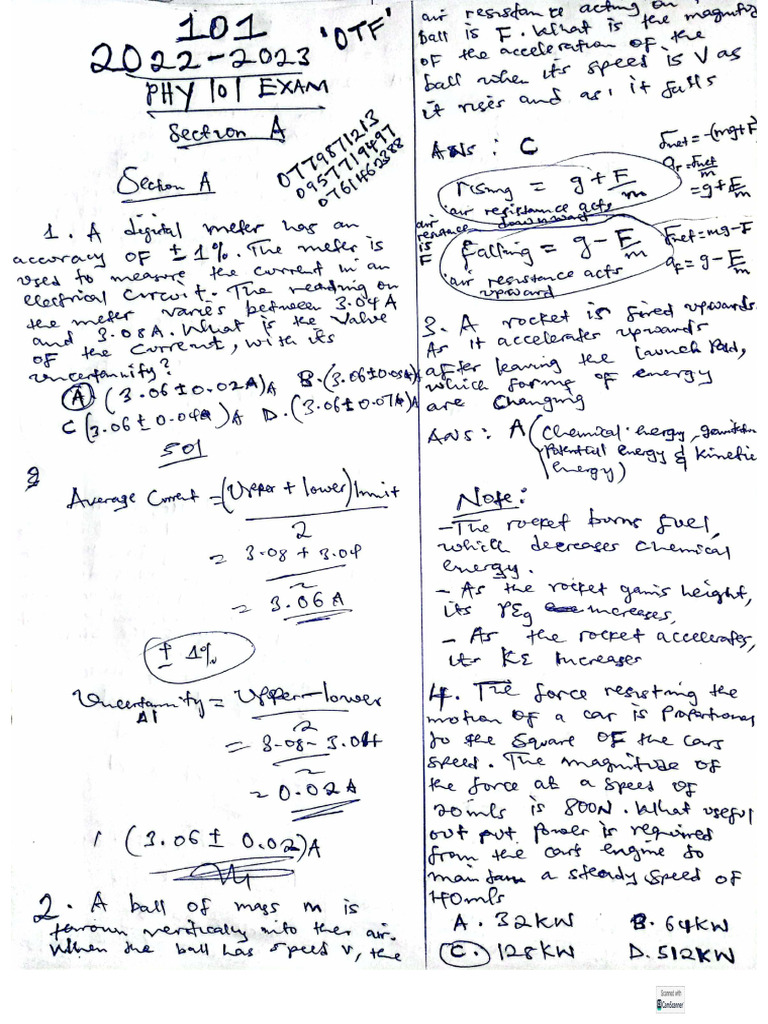 101
2022-2023 'OTF'
PHY 101 EXAM
Section A
0779871213
0957719497
0761462388
Section A
1. A digital meter has an
accuracy OF ± 1%. The meter is
used to measure the current in an
electrical circuit. The reading on
the meter varies between 3.04A
and 3.08A. What is the Value
of the current, with its
uncertainity?
A. (3.06±0.02A)A B. (3.06±0.05A)A
C (3.06±0.04A)A D. (3.06±0.07A)A
501
Average Current = (Upper + lower) limit
2
= 3.08 + 3.04
2
= 3.06 A
± 1%
Uncertainity = Upper - lower
AI 2
= 3.08 - 3.04
2
= 0.02A
(3.06 ± 0.02)A
2. A ball of mass m is
thrown vertically into the air.
When the ball has speed v, the
air resistance acting on
ball is F. What is the magnitu
OF the acceleration OF the
ball when its speed is V as
it rises and as it falls
Ans: C
rising = g + F/m
air resistance acts
downward
Fnet = -(mg+F)
ar = Fnet/m
= g + F/m
air
resistance
is
F
Falling = g - F/m
air resistance acts
upward
Fnet = mg - F
aF = g - F/m
3. A rocket is fired upwards.
As it accelerates upwards
after leaving the Launch Pad,
which forms OF energy
are changing
Ans: A (Chemical energy, gravitation
potential energy & kinetic
energy)
Note:
- The rocket burns fuel,
which decreases chemical
energy.
- As the rocket gains height,
its PEg increases,
- As the rocket accelerates,
its KE increases
4. The force resisting the
motion OF a car is Proportional
to the square OF the cars
speed. The magnitude of
the force at a speed of
20m/s is 800N. What useful
out put power is required
from the cars engine to
maintain a steady speed of
40m/s
A. 32KW B. 64KW
C. 128KW D. 512KW
Scanned with
CamScanner